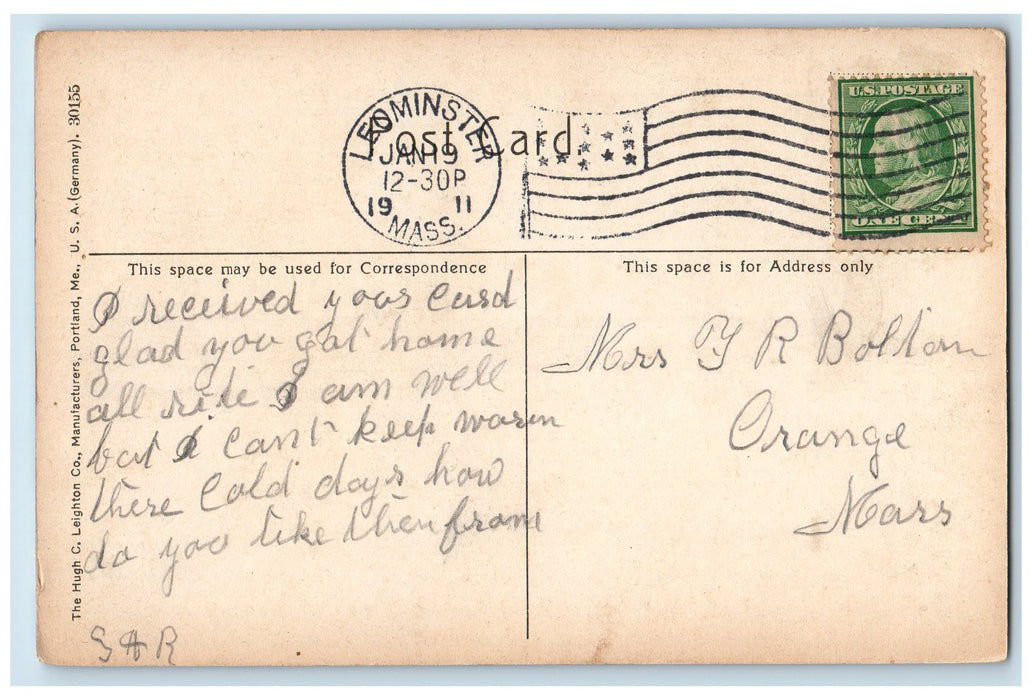 LEOMINSTER
JAN 19
12-30P
19 11
MASS.
Post Card
U.S. POSTAGE
ONE CENT
The Hugh C. Leighton Co., Manufacturers, Portland, Me., U. S. A. (Germany). 30155
This space may be used for Correspondence
I received your card
glad you got home
all rite I am well
but I cant keep warm
these Cold days how
do you like them from
G A R
This space is for Address only
Mrs F R Bolton
Orange
Mass